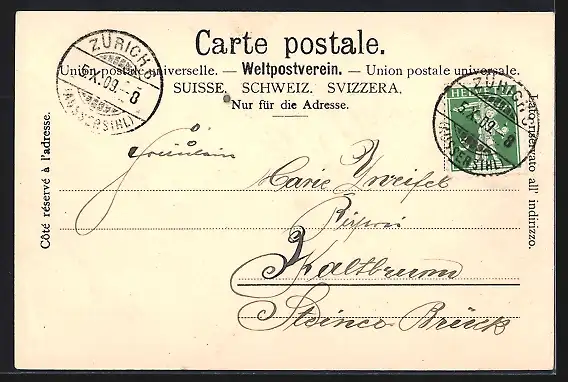 Carte postale.
Union postale universelle. — Weltpostverein. — Union postale universale.
SUISSE. SCHWEIZ. SVIZZERA.
Nur für die Adresse.
ZÜRICH
5.X.09.–8
Côté réservé à l'adresse.
HELVETIA
ZÜRICH
5.X.09.–8
Lato riservato all' indirizzo.
Fräulein
Marie Zweifel
Kaltbrunn
Steinen-Brück